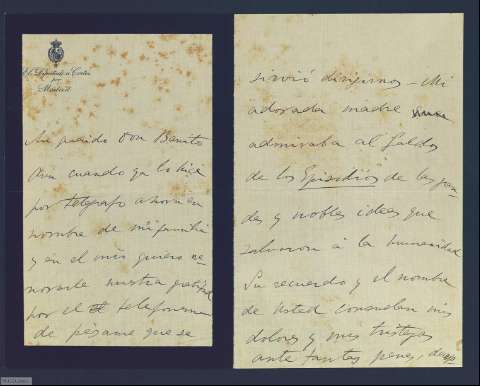 El Diputado a Cortes
por
Madrid
Mi querido Don Benito
Aun cuando ya lo hice
por telégrafo ahora en
nombre de mi familia
y en el mio quiero re-
novarle nuestra gratitud
por el telefonema
de pésame que se
sirvió dirigirnos - Mi
adorada madre
admiraba al Galdos
de los Episodios de las gran-
des y nobles ideas que
salvaron á la humanidad
Su recuerdo y el nombre
de Usted consuelan mis
dolores y mis tristezas
ante tantas penas,